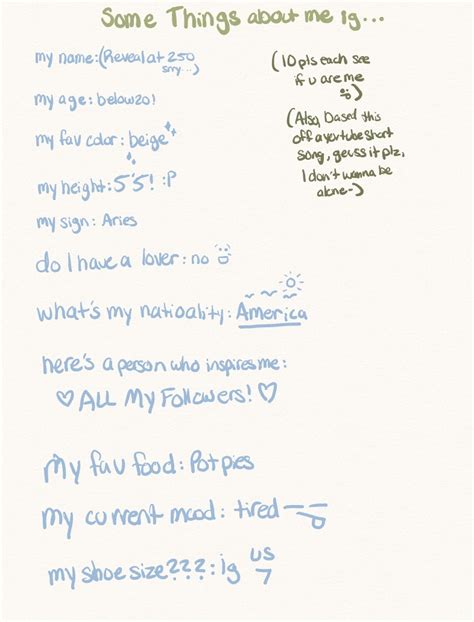 Some Things about me ig...
my name:(Reveal at 250
srry...)
(10 pts each see
if u are me
my age: below20!
(Also, based this
off a youtube short
song, geuss it plz,
I don't wanna be
alone-)
my fav color: beige
my height: 5'5! :P
my sign: Aries
do I have a lover: no
what's my natioality: America
here's a person who inspires me:
♡ ALL My Followers! ♡
my fav food: Pot pies
my current mood: tired
my shoe size???: ig US
7